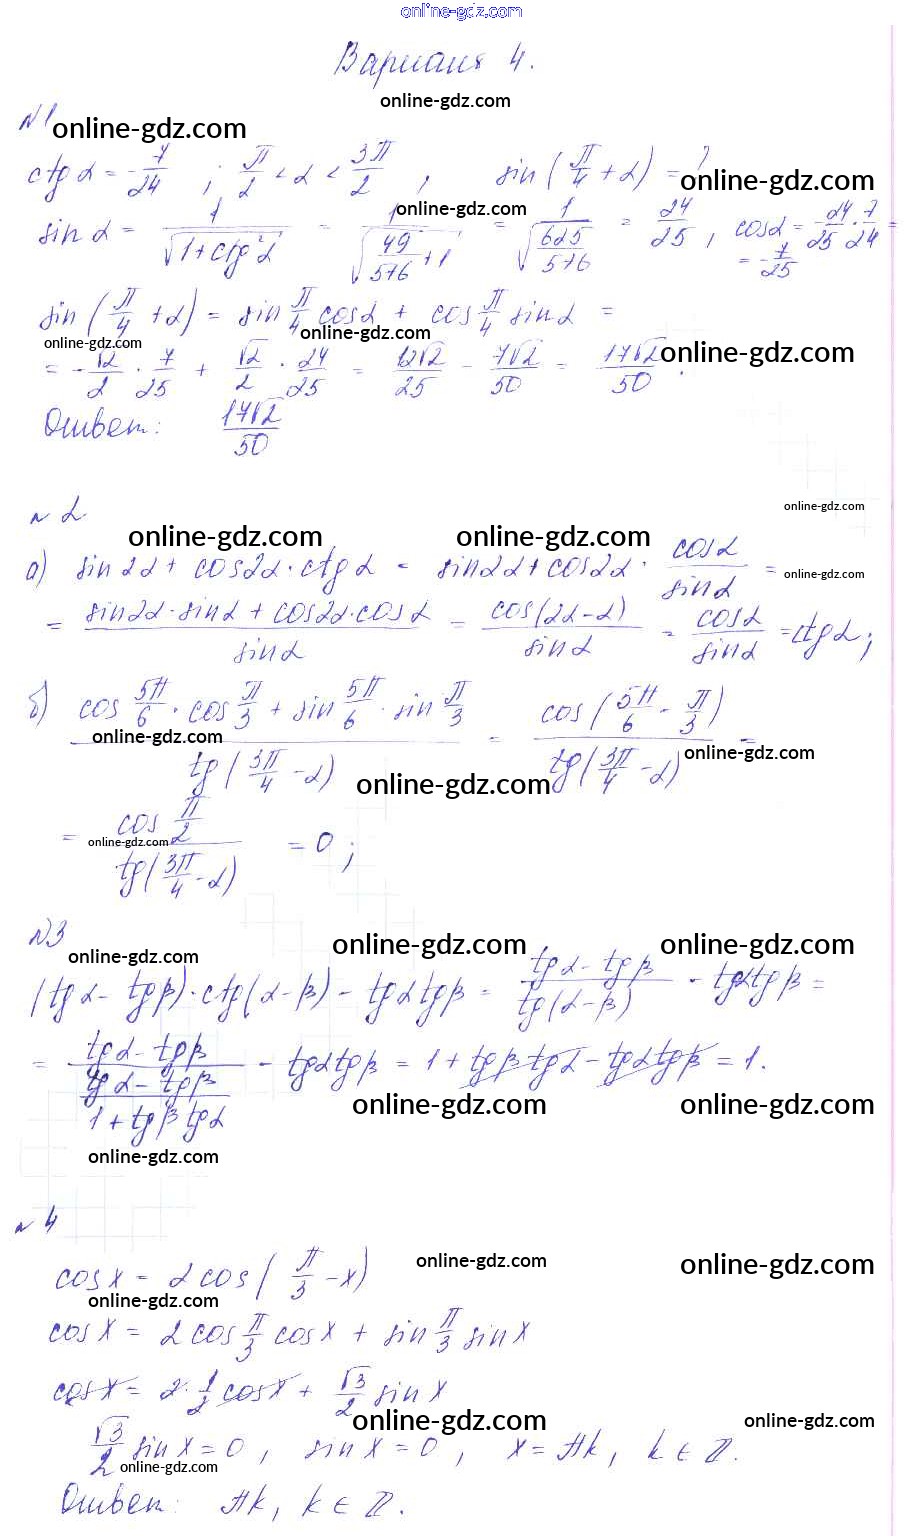 online-gdz.com
Вариант 4.
online-gdz.com
№1
online-gdz.com
ctg α = -7/24 ; π/2 < α < 3π/2 , sin(π/4 + α) = ?
online-gdz.com
online-gdz.com
sin α = 1/√(1+ctg²α) = 1/√(49/576 + 1) = 1/√(625/576) = 24/25 , cosα = -24/25 · 7/24 =
= -7/25
sin(π/4 + α) = sin π/4 cosα + cos π/4 sin α =
online-gdz.com
online-gdz.com
online-gdz.com
= -√2/2 · 7/25 + √2/2 · 24/25 = 12√2/25 - 7√2/50 = 17√2/50 .
Ответ: 17√2/50
online-gdz.com
№ 2
online-gdz.com
online-gdz.com
а) sin 2α + cos2α · ctg α = sin2α + cos2α · cosα/sinα =
online-gdz.com
= (sin2α · sinα + cos2α · cosα)/sinα = cos(2α - α)/sinα = cosα/sinα = ctg α ;
б) (cos 5π/6 · cos π/3 + sin 5π/6 · sin π/3)/tg(3π/4 - α) = cos(5π/6 - π/3)/tg(3π/4 - α) =
online-gdz.com
online-gdz.com
online-gdz.com
= cos π/2 / tg(3π/4 - α) = 0 ;
online-gdz.com
№3
online-gdz.com
online-gdz.com
online-gdz.com
(tg α - tg β) · ctg(α - β) - tg α tg β = (tg α - tg β)/tg(α - β) - tgα tg β =
= (tg α - tg β)/((tg α - tg β)/(1 + tg β tg α)) - tgα tg β = 1 + tg β tg α - tg α tg β = 1.
online-gdz.com
online-gdz.com
online-gdz.com
№ 4
online-gdz.com
online-gdz.com
cos x = 2 cos(π/3 - x)
online-gdz.com
cos x = 2 cos π/3 cos x + sin π/3 sin x
cos x = 2 · 1/2 cos x + √3/2 sin x
online-gdz.com
online-gdz.com
√3/2 sin x = 0 , sin x = 0 , x = πk , k ∈ Z.
online-gdz.com
Ответ: πk , k ∈ Z.